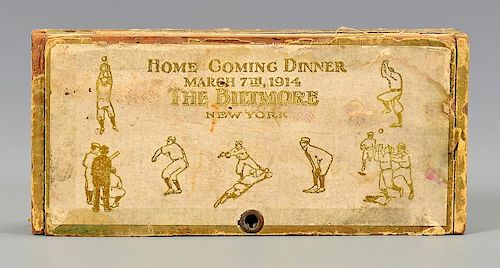 HOME COMING DINNER
MARCH 7TH, 1914
THE BILTMORE
NEW YORK